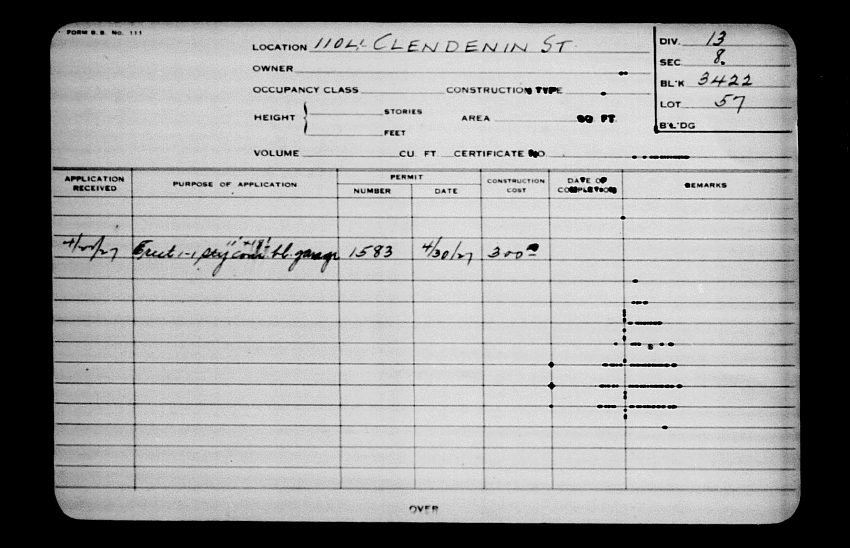 FORM B.B. NO. 111
LOCATION CLENDENIN ST.
DIV. 13
OWNER
SEC 8.
OCCUPANCY CLASS CONSTRUCTION TYPE
BL'K 3422
HEIGHT STORIES AREA SQ FT.
LOT 57
FEET
B'L'DG
VOLUME CU. FT CERTIFICATE NO.
APPLICATION RECEIVED PURPOSE OF APPLICATION PERMIT NUMBER DATE CONSTRUCTION COST DATE OF COMPLETION REMARKS
Erect 1-1 sty conc. bl. garage 1583 4/30/27 300
OVER